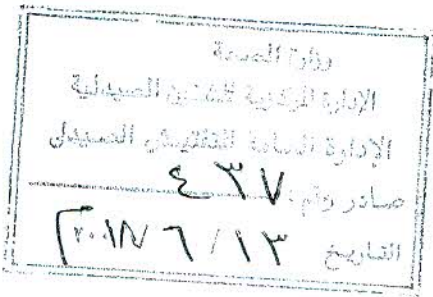 وزارة الصحة
الإدارة المركزية للشئون الصيدلية
الإدارة العامة للتفتيش الصيدلى
صادر رقم: ٤٣٧
التاريخ ١٣ / ٦ / ٢٠١٧